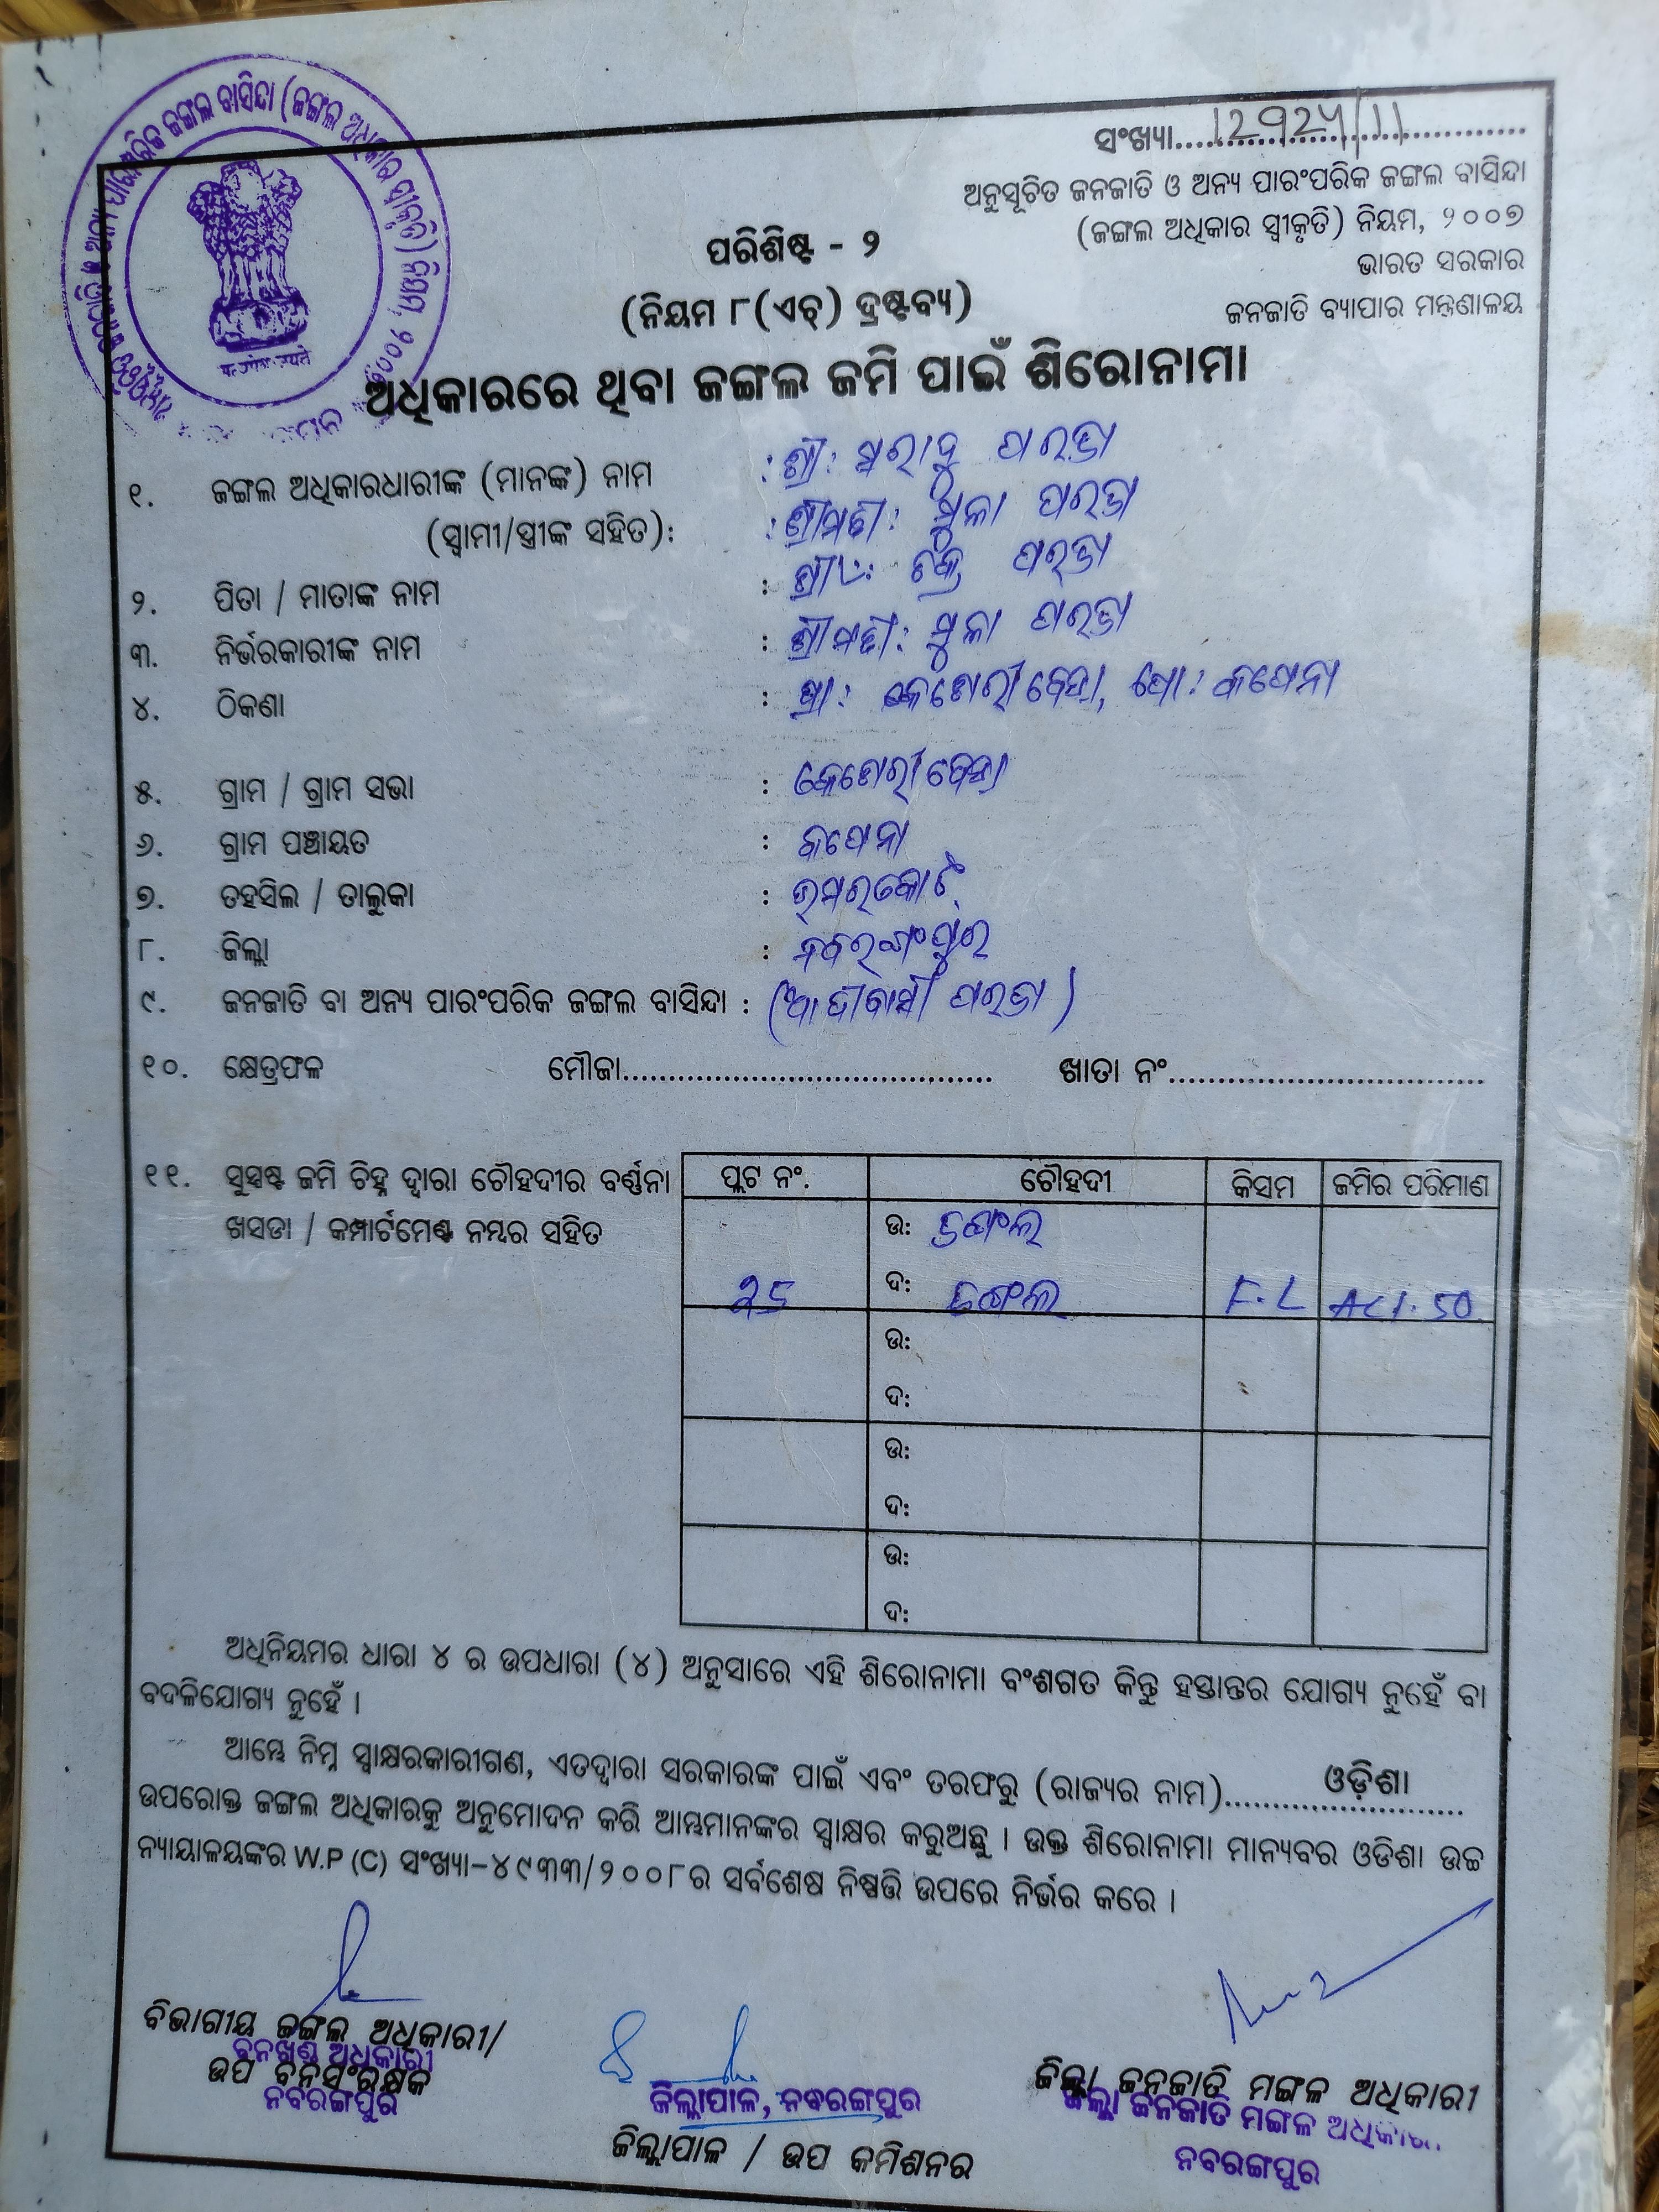 ସଂଖ୍ୟା..........
ଅନୁସୂଚିତ ଜନଜାତି ଓ ଅନ୍ୟ ପାରଂପରିକ ଜଙ୍ଗଲ ବାସିନ୍ଦା
(ଜଙ୍ଗଲ ଅଧିକାର ସ୍ୱୀକୃତି) ନିୟମ, ୨୦୦୭
ପରିଶିଷ୍ଟ - ୨
ଭାରତ ସରକାର
(ନିୟମ ୮(ଏଚ୍) ଦ୍ରଷ୍ଟବ୍ୟ)
ଜନଜାତି ବ୍ୟାପାର ମନ୍ତ୍ରଣାଳୟ
ଅଧିକାରରେ ଥିବା ଜଙ୍ଗଲ ଜମି ପାଇଁ ଶିରୋନାମା
୧. ଜଙ୍ଗଲ ଅଧିକାରଧାରୀଙ୍କ (ମାନଙ୍କ) ନାମ : ଶ୍ରୀ:
(ସ୍ୱାମୀ/ସ୍ତ୍ରୀଙ୍କ ସହିତ): : ଶ୍ରୀମତୀ:
୨. ପିତା / ମାତାଙ୍କ ନାମ :
୩. ନିର୍ଭରକାରୀଙ୍କ ନାମ : ଶ୍ରୀମତୀ:
୪. ଠିକଣା : ଗ୍ରା:
୫. ଗ୍ରାମ / ଗ୍ରାମ ସଭା :
୬. ଗ୍ରାମ ପଞ୍ଚାୟତ :
୭. ତହସିଲ / ତାଲୁକା : ଉମରକୋଟ୍
୮. ଜିଲ୍ଲା : ନବରଂଗପୁର
୯. ଜନଜାତି ବା ଅନ୍ୟ ପାରଂପରିକ ଜଙ୍ଗଲ ବାସିନ୍ଦା : (ଆଦୀବାସୀ
୧୦. କ୍ଷେତ୍ରଫଳ ମୌଜା.......... ଖାତା ନଂ..........
୧୧. ସୁସ୍ପଷ୍ଟ ଜମି ଚିହ୍ନ ଦ୍ୱାରା ଚୌହଦୀର ବର୍ଣ୍ଣନା
ଖସଡା / କମ୍ପାର୍ଟମେଣ୍ଟ ନମ୍ବର ସହିତ
ପ୍ଲଟ ନଂ. ଚୌହଦୀ କିସମ ଜମିର ପରିମାଣ
ଉ: ଜଙ୍ଗଲ
ଦ: ଜଙ୍ଗଲ F.L AC1.50
ଉ:
ଦ:
ଉ:
ଦ:
ଉ:
ଦ:
ଅଧିନିୟମର ଧାରା ୪ ର ଉପଧାରା (୪) ଅନୁସାରେ ଏହି ଶିରୋନାମା ବଂଶଗତ କିନ୍ତୁ ହସ୍ତାନ୍ତର ଯୋଗ୍ୟ ନୁହେଁ ବା
ବଦଳିଯୋଗ୍ୟ ନୁହେଁ ।
ଆମ୍ଭେ ନିମ୍ନ ସ୍ୱାକ୍ଷରକାରୀଗଣ, ଏତଦ୍ୱାରା ସରକାରଙ୍କ ପାଇଁ ଏବଂ ତରଫରୁ (ରାଜ୍ୟର ନାମ)..........ଓଡ଼ିଶା
ଉପରୋକ୍ତ ଜଙ୍ଗଲ ଅଧିକାରକୁ ଅନୁମୋଦନ କରି ଆମ୍ଭମାନଙ୍କର ସ୍ୱାକ୍ଷର କରୁଅଛୁ । ଉକ୍ତ ଶିରୋନାମା ମାନ୍ୟବର ଓଡିଶା ଉଚ୍ଚ
ନ୍ୟାୟାଳୟଙ୍କର W.P (C) ସଂଖ୍ୟା-୪୯୩୩/୨୦୦୮ର ସର୍ବଶେଷ ନିଷ୍ପତ୍ତି ଉପରେ ନିର୍ଭର କରେ ।
ବିଭାଗୀୟ ଜଙ୍ଗଲ ଅଧିକାରୀ/
ବନଖଣ୍ଡ ଅଧିକାରୀ
ଉପ ବନସଂରକ୍ଷକ
ନବରଙ୍ଗପୁର
ଜିଲ୍ଲାପାଳ, ନବରଙ୍ଗପୁର
ଜିଲ୍ଲାପାଳ / ଉପ କମିଶନର
ଜିଲ୍ଲା ଜନଜାତି ମଙ୍ଗଳ ଅଧିକାରୀ
ଜିଲ୍ଲା ଜନଜାତି ମଙ୍ଗଳ ଅଧିକାରୀ
ନବରଙ୍ଗପୁର